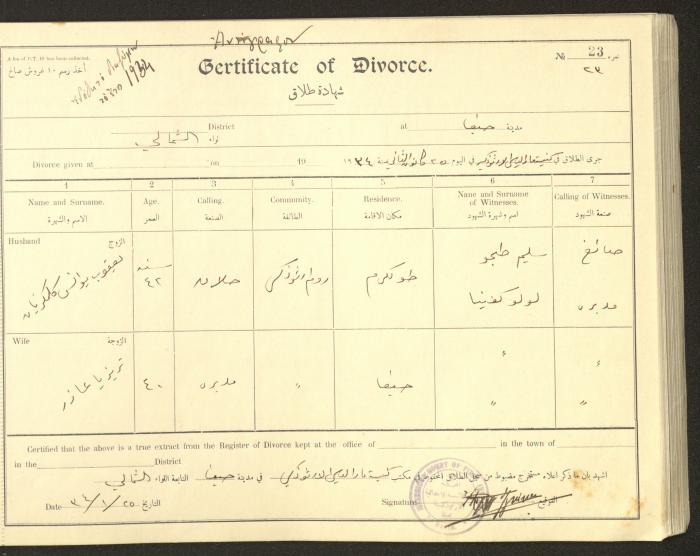 A fee of P.T. 10 has been collected.
أخذ رسم ١٠ غروش صاغ
1934
Certificate of Divorce.
شهادة طلاق
№ 23 نمرة
٢٣
District at مدينة حيفا
لواء الشمالي
Divorce given at on 19 ١٩٣٤ جرى الطلاق في في اليوم ٢٥ كانون الثاني سنة
1 2 3 4 5 6 7
Name and Surname. Age. Calling. Community. Residence. Name and Surname of Witnesses. Calling of Witnesses.
الاسم والشهرة العمر الصنعة الطائفة مكان الاقامة اسم وشهرة الشهود صنعة الشهود
Husband الزوج
يعقوب سنة ٤٢ روم ارثوذكس طولكرم سليم صائغ
لولو مدبره
Wife الزوجة
تريزيا عازر ٤٠ مدبره " حيفا " "
" "
Certified that the above is a true extract from the Register of Divorce kept at the office of in the town of
in the District
اشهد بان ما ذكر اعلاه مستخرج مضبوط من سجل الطلاق المحفوظ في مكتب كنيسة في مدينة حيفا التابعة اللواء الشمالي
Date ٣٤/١/٢٥ التاريخ Signature التوقيع